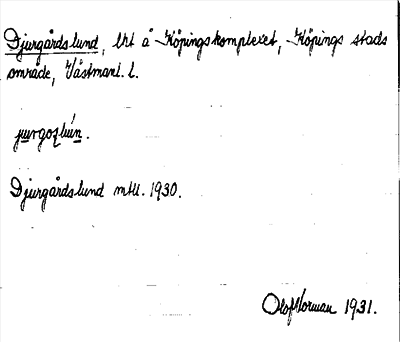 Djurgårdslund, lht å Köpingskomplexet, Köpings stads
område, Västmanl. l.
Djurgårdslund mtU. 1930.
Olof Norman 1931.